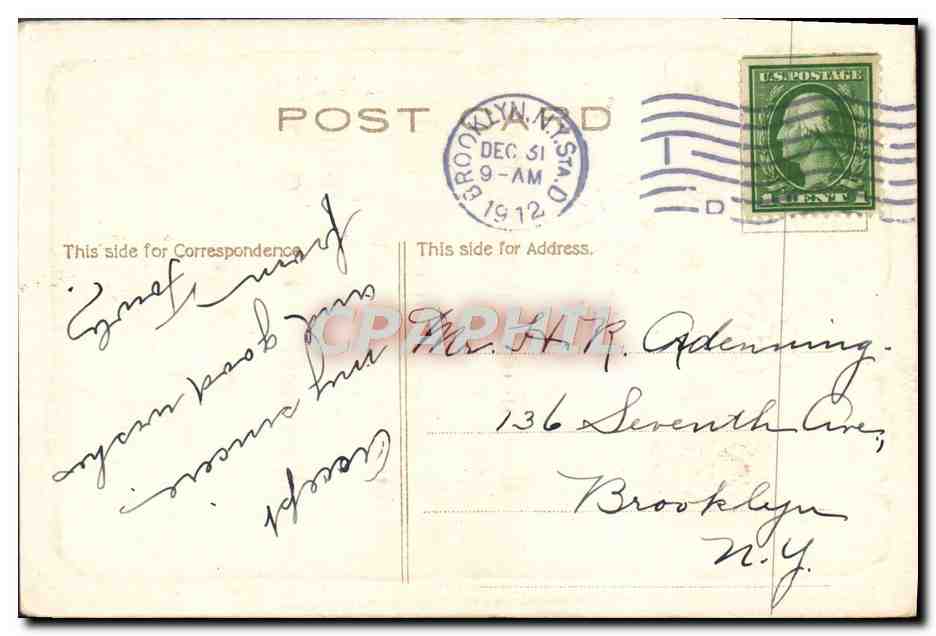 POST CARD
BROOKLYN, N.Y. STA. D
DEC 31
9-AM
1912
D
U.S. POSTAGE
1 CENT 1
This side for Correspondence.
This side for Address.
Accept
my sincere
and good wishes
from
CPAPHIL
Mr. H. R. Adenning.
136 Seventh Ave.,
Brooklyn
N.Y.